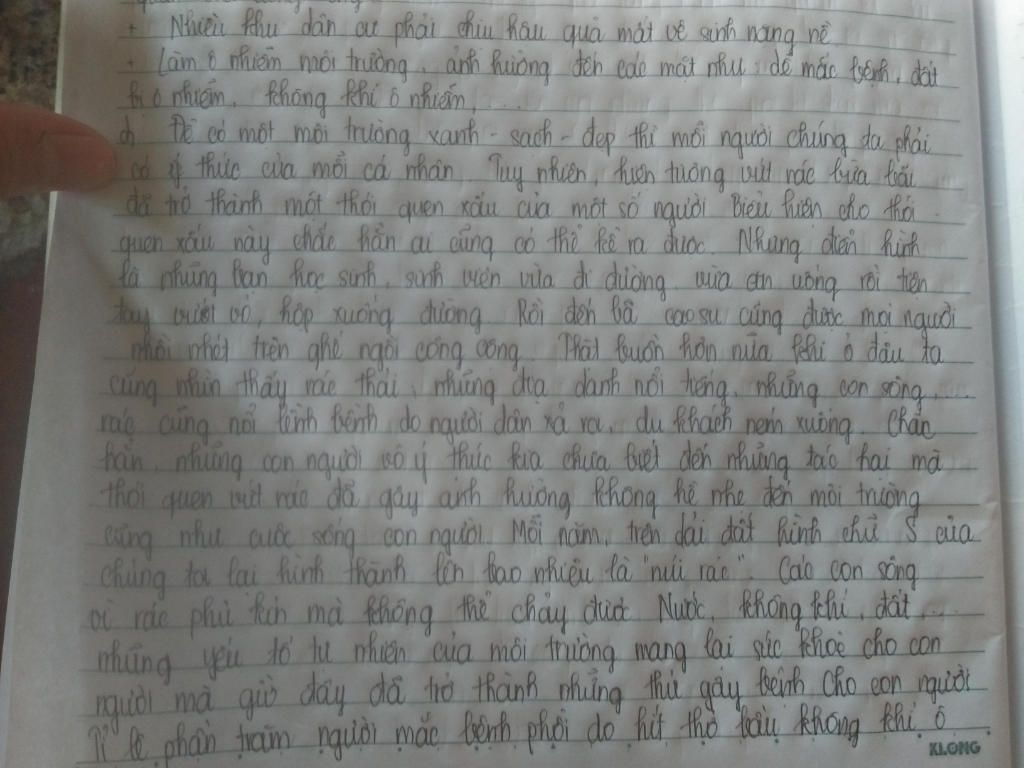 + Nhiều khu dân cư phải chịu hậu quả mất vệ sinh nặng nề
+ Làm ô nhiễm môi trường, ảnh hưởng đến các mặt như: dễ mắc bệnh, đất
bị ô nhiễm, không khí ô nhiễm, ...
d, Để có một môi trường xanh - sạch - đẹp thì mỗi người chúng da phải
có ý thức của mỗi cá nhân. Tuy nhiên, hiện tượng vứt rác bừa bãi
đã trở thành một thói quen xấu của một số người Biểu hiện cho thói
quen xấu này chắc hẳn ai cũng có thể kể ra được. Nhưng điển hình
là những bạn học sinh, sinh viên vừa đi đường vừa ăn uống rồi tiện
tay vứt vỏ, hộp xuống đường. Rồi đến bã cao su cũng được mọi người
nhồi nhét trên ghế ngồi công cộng. Thật buồn hơn nữa khi ở đâu ta
cũng nhìn thấy rác thải, những địa danh nổi tiếng, những con sông, ...
rác cũng nổi lềnh bềnh do người dân xả ra, du khách ném xuống. Chắc
hẳn, những con người vô ý thức kia chưa biết đến những tác hại mà
thói quen vứt rác đã gây ảnh hưởng không hề nhẹ đến môi trường
cũng như cuộc sống con người. Mỗi năm, trên dải đất hình chữ S của
chúng ta lại hình thành lên bao nhiêu là "núi rác". Các con sông
vì rác phủ kín mà không thể chảy được Nước, không khí, đất ...
những yếu tố tự nhiên của môi trường mang lại sức khoẻ cho con
người mà giờ đây đã trở thành những thứ gây bệnh cho con người
Tỉ lệ phần trăm người mắc bệnh phổi do hít thở bầu không khí ô
KLONG